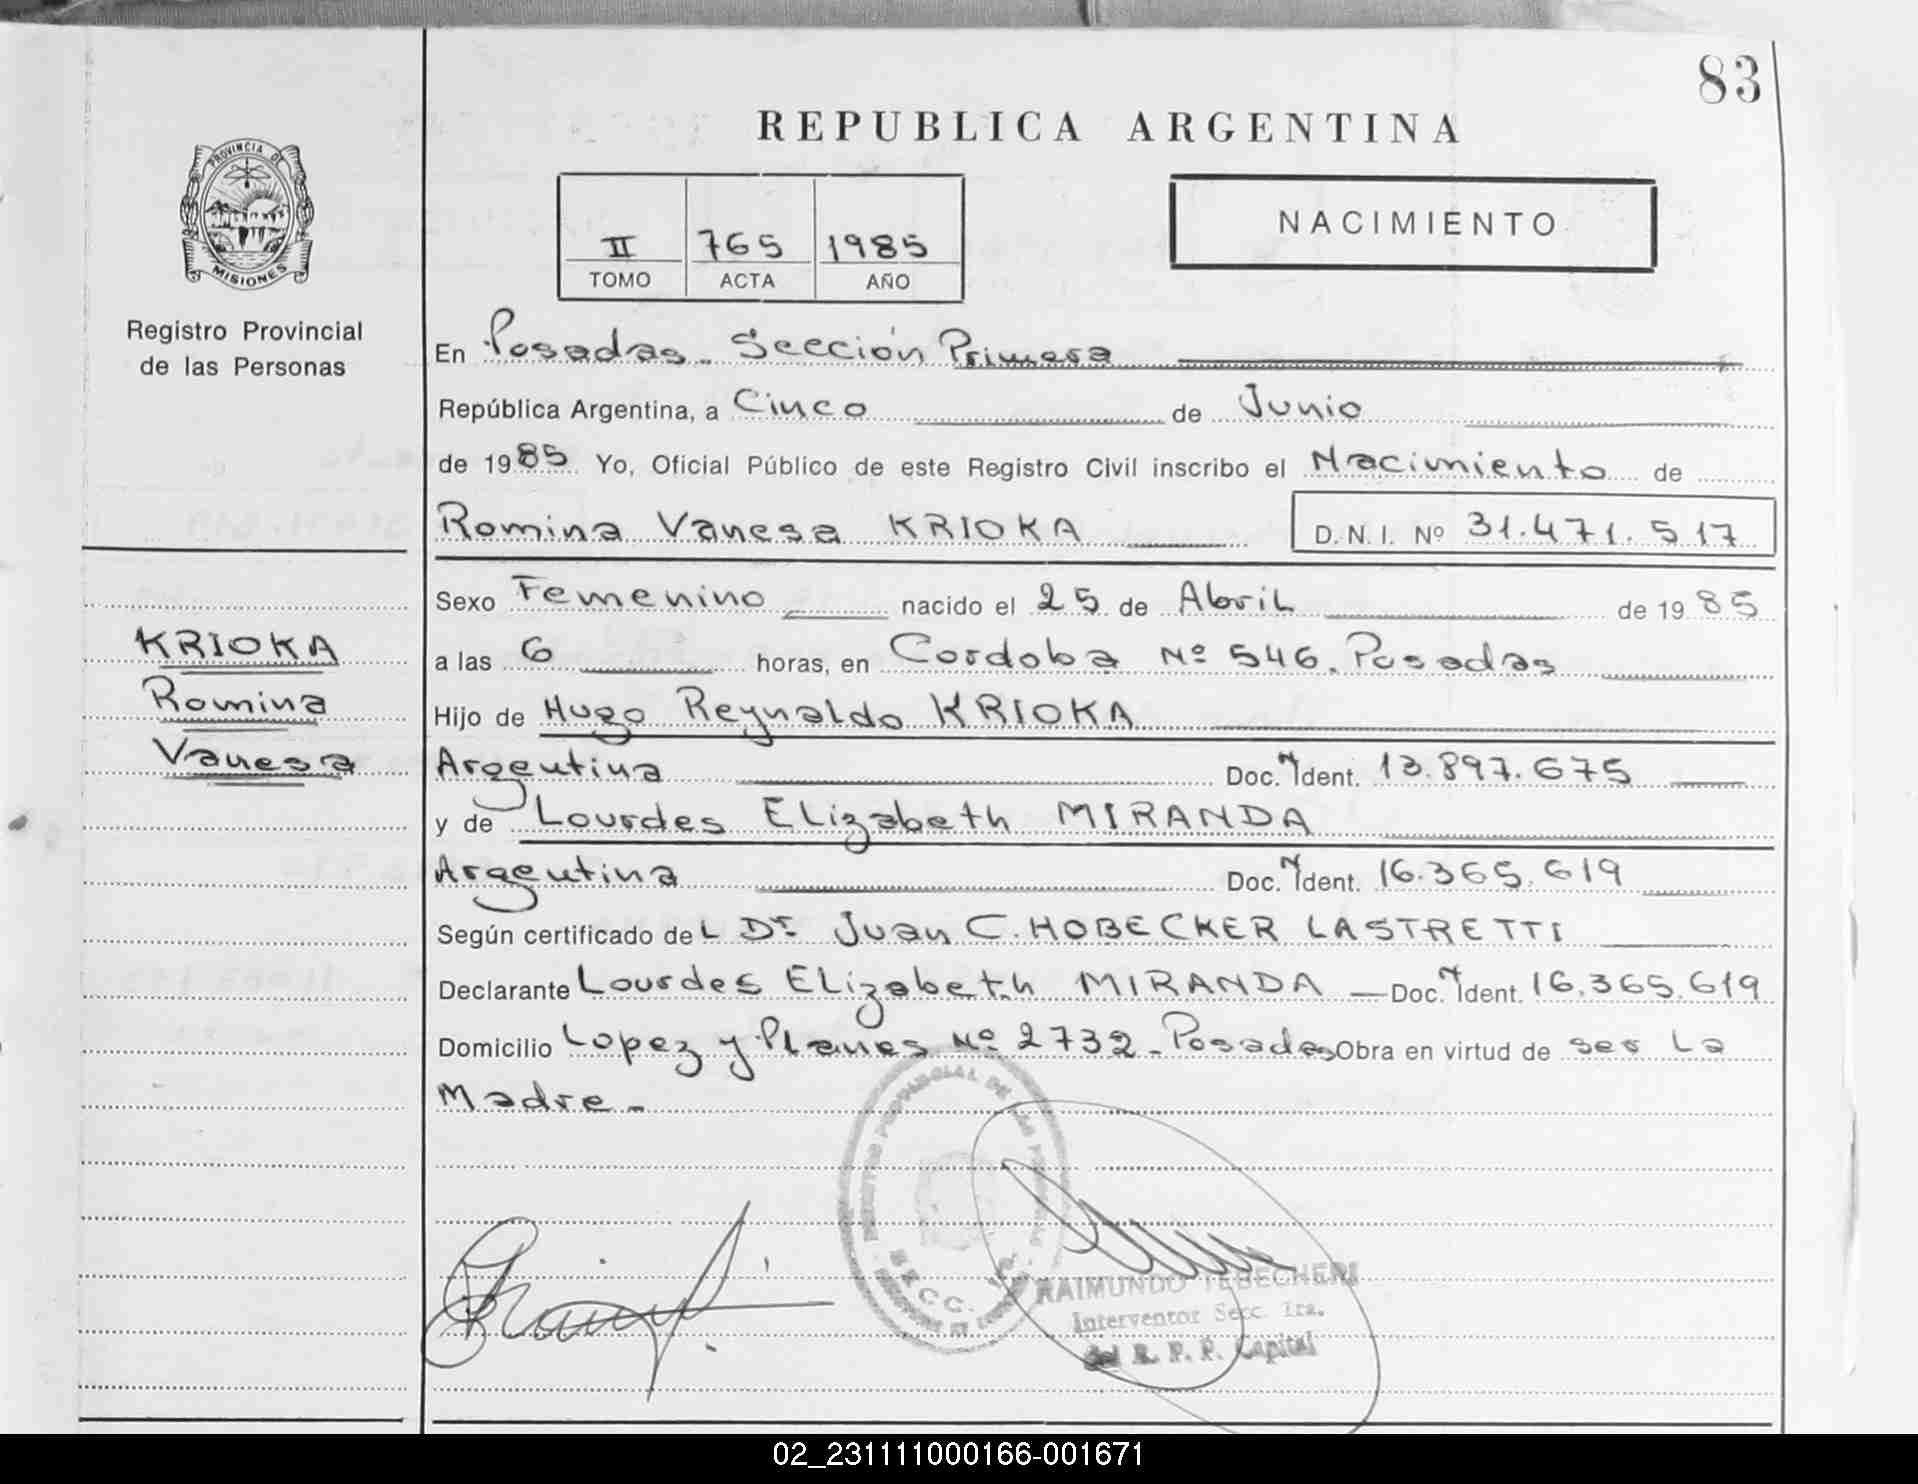 83
REPUBLICA ARGENTINA
PROVINCIA DE
MISIONES
Registro Provincial
de las Personas
II 765 1985
TOMO ACTA AÑO
NACIMIENTO
En Posadas - Sección Primera
República Argentina, a Cinco de Junio
de 1985 Yo, Oficial Público de este Registro Civil inscribo el Nacimiento de
Romina Vanesa KRIOKA D. N. I. Nº 31.471.517
Sexo Femenino nacido el 25 de Abril de 1985
KRIOKA
Romina
Vanesa
a las 6 horas, en Cordoba Nº 546. Posadas
Hijo de Hugo Reynaldo KRIOKA
Argentina Doc. N Ident. 13.897.675
y de Lourdes Elizabeth MIRANDA
Argentina Doc. N Ident. 16.365.619
Según certificado del Dr. Juan C. HOBECKER LASTRETTI
Declarante Lourdes Elizabeth MIRANDA — Doc. N Ident. 16.365.619
Domicilio Lopez y Planes Nº 2732 - Posadas Obra en virtud de ser la
Madre -
RAIMUNDO TEBECHERI
Interventor Secc. 1ra.
del R. P. P. Capital
02_231111000166-001671